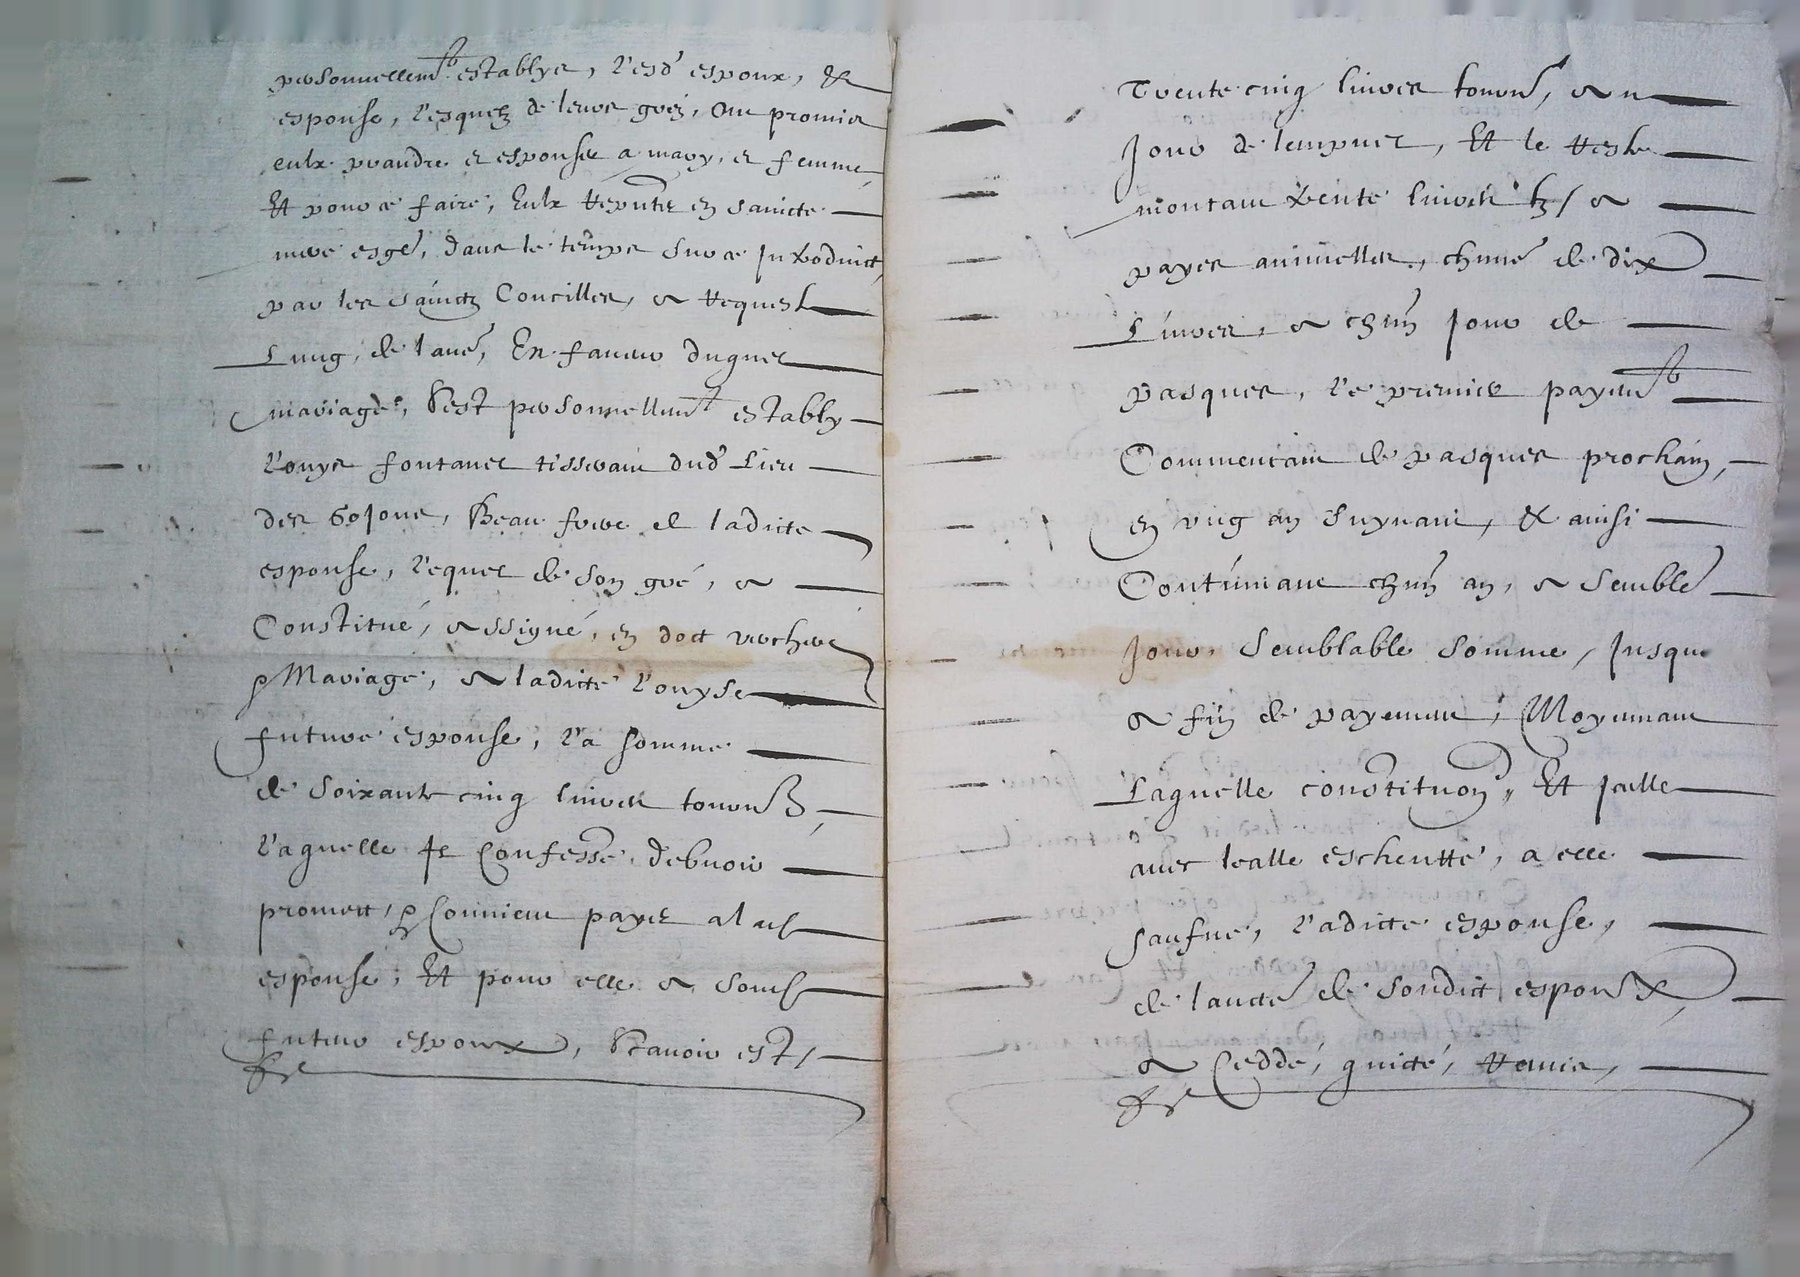 personnellemt establys, lesd espoux, &
espouse, lesquelz de leurs grez, ont promis
eulx prandre et espouser a mary, et femme
Et pour ce faire, Eulx rep̃nter en saincte
mere esgẽ, dans le temps sur ce Introduict,
par les sainctz Concilles, a requeste
Lung, de laue, En faueur duquel
mariage, sest personnellemt estably
Louys fontanes tisseran dud Lieu
des Gojons, Beau frere de ladicte
espouse, lequel de son gré, a
Constitué, assigné, en doct verchere
& Mariage, a ladicte Louyse
future espouse, la somme
de soixante cinq liures tourns,
laquelle Il Confesse, debuoir
promett, & Conuient payer a lad
espouse, Et pour elle a sond
futur espoux, scauoir est,
Trente cinq liures tourns, au
Jour de lempuel, Et le reste
montant trente liures tz, a
payes annuelles, chune de dix
Liures, a chun Jour de
pasques, le premier payemt
Commencant de pasques prochain,
en vng an suyuant, & ainsi
Continuant chun an, a semble
Jour, semblable somme, Jusque
a fin de payement, Moyennant
Laquelle constitution, Et Icelle
auec lealle escheutte, a elle
saufue, ladicte espouse,
de laucte de sondict espoux,
a Ceddé, quicté, remis,